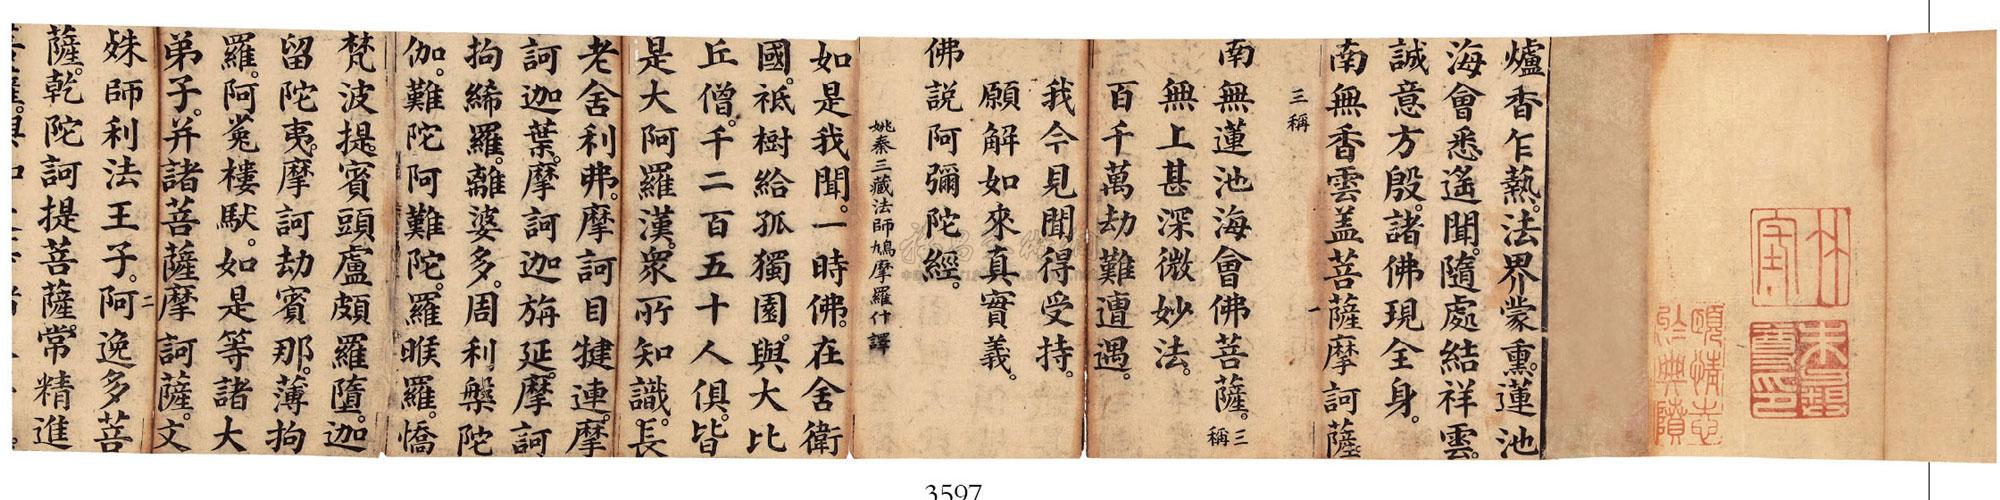 爐香乍熱。法界蒙熏。蓮池
海會悉遙聞。隨處結祥雲。
誠意方殷。諸佛現全身。
南無香雲盖菩薩摩訶薩
三稱
一
南無蓮池海會佛菩薩。三稱
無上甚深微妙法。
百千萬劫難遭遇。
我今見聞得受持。
願解如來真實義。
佛説阿彌陀經。
姚秦三藏法師鳩摩羅什譯
如是我聞。一時佛。在舍衛
國。祇樹給孤獨園。與大比
丘僧。千二百五十人俱。皆
是大阿羅漢。衆所知識。長
老舍利弗。摩訶目犍連。摩
訶迦葉。摩訶迦旃延。摩訶
拘絺羅。離婆多。周利槃陀
伽。難陀。阿難陀。羅睺羅。憍
梵波提。賓頭盧頗羅墮。迦
留陀夷。摩訶劫賓那。薄拘
羅。阿㝹樓馱。如是等諸大
弟子。并諸菩薩摩訶薩。文
二
殊師利法王子。阿逸多菩
薩。乾陀訶提菩薩。常精進
3597